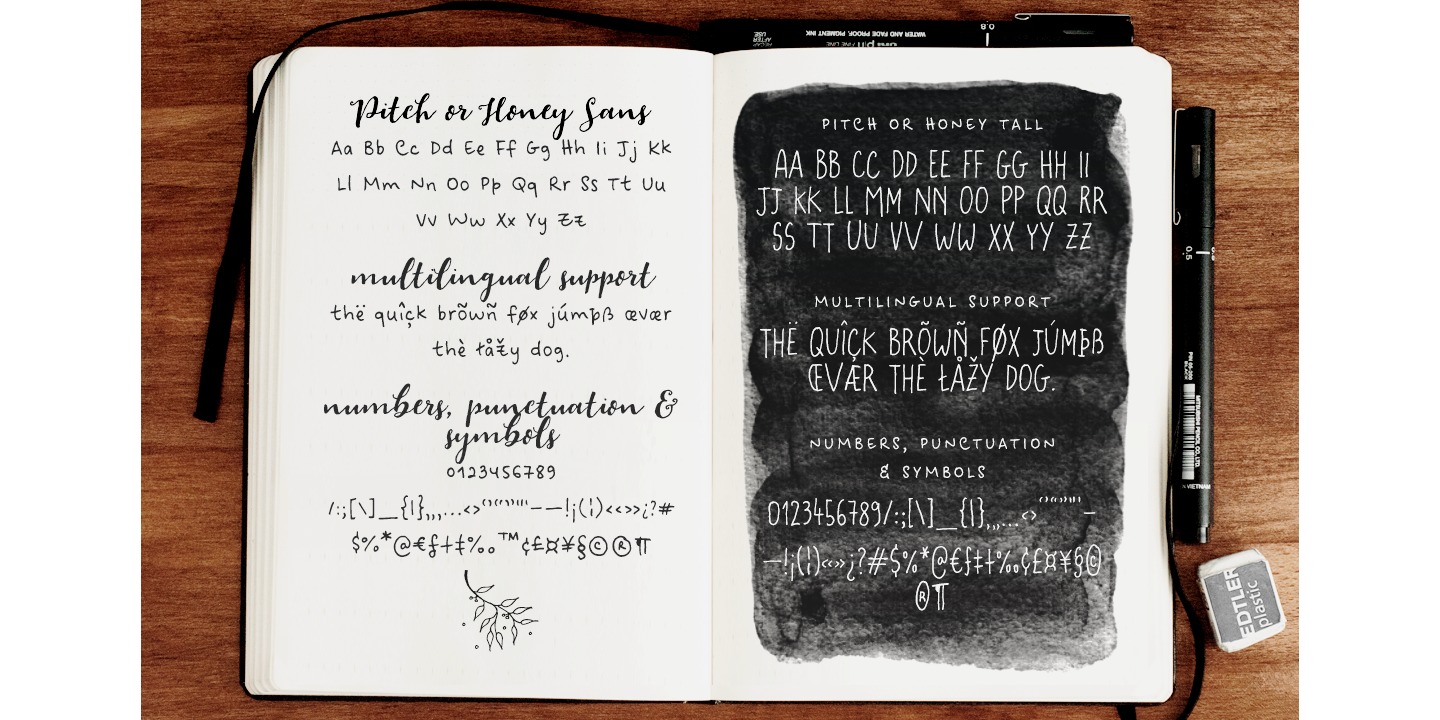 Pitch or Honey Sans
Aa Bb Cc Dd Ee Ff Gg Hh Ii Jj Kk
Ll Mm Nn Oo Pp Qq Rr Ss Tt Uu
Vv Ww Xx Yy Zz
multilingual support
thë quîçk brõwñ føx júmpß œvær
thè łåžy dog.
numbers, punctuation &
symbols
0123456789
/:;[\]_{|}‚„,…‹›‘’“”'"–—!¡(¦)«‹›»¿?#
$%*@€ƒ†‡‰™¢£¤¥§©®¶
PITCH OR HONEY TALL
AA BB CC DD EE FF GG HH II
JJ KK LL MM NN OO PP QQ RR
SS TT UU VV WW XX YY ZZ
MULTILINGUAL SUPPORT
THË QUÎÇK BRÕWÑ FØX JÚMÞß
ŒVÆR THÈ ŁÅŽY DOG.
NUMBERS, PUNCTUATION
& SYMBOLS
0123456789/:;[\]_{|}‚„,…‹›‘’“”'"–
—!¡(¦)«»¿?#$%*@€ƒ†‡‰¢£¤¥§©
®¶
WATER AND FADE PROOF, PIGMENT INK
uni pin FINE LINE
RECAP
AFTER
USE.
0.8
0.5
PIN 05-200
BLACK
MITSUBISHI PENCIL CO., LTD.
VIETNAM
EDTLER
plastic